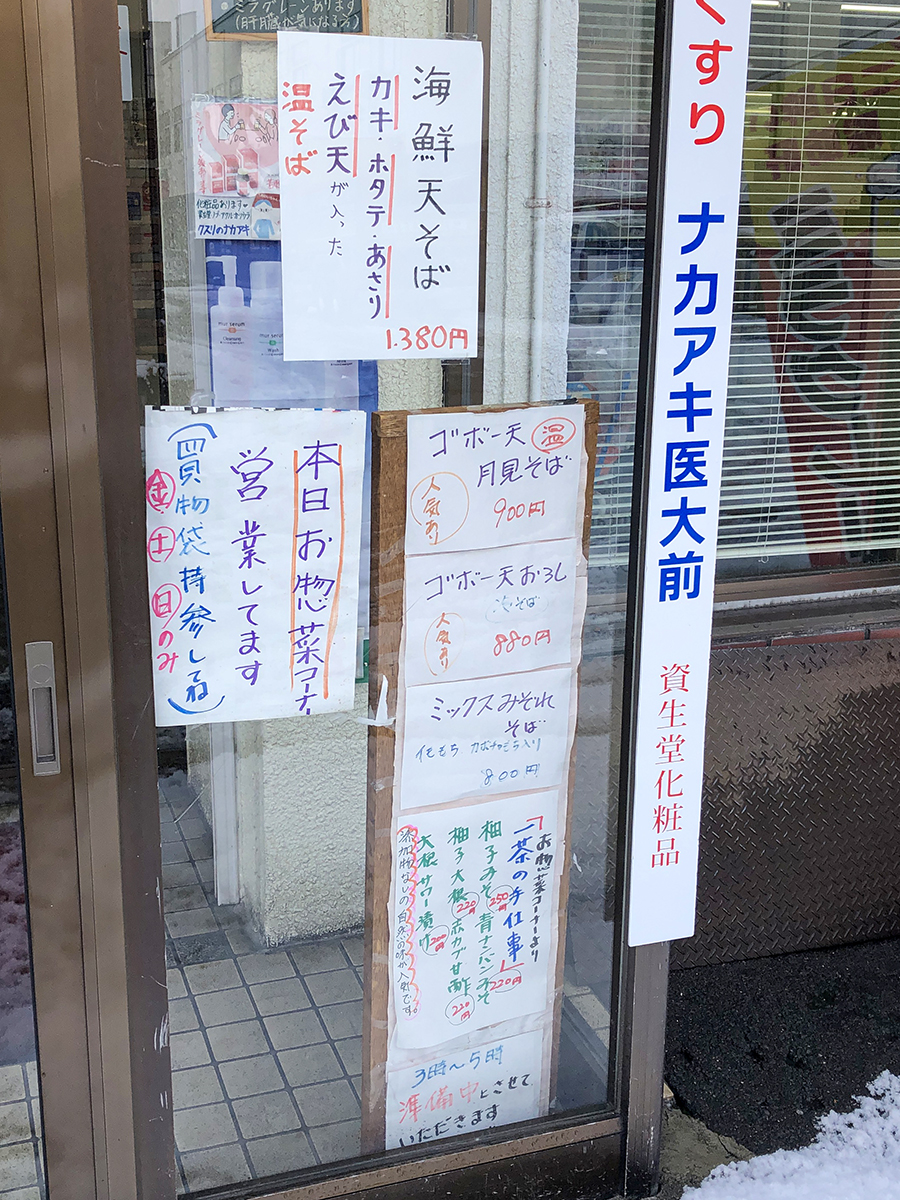 ミラグレーンあります
(肝臓が気になる方)
海鮮天そば
カキ・ホタテ・あさり
えび天が入った
温そば
1.380円
化粧品あります
クスリのナカアキ
本日お惣菜コーナー
営業してます
(買物袋持参してね)
金 土 日のみ
ゴボー天 温
月見そば
人気あり
900円
ゴボー天おろし
冷そば
人気あり
880円
ミックスみぞれ
そば
イモもち カボチャもち入り
800円
お惣菜コーナーより
「一茶の手仕事」
柚子みそ 250円 青ナンバンみそ 220円
柚子大根 220円 赤カブ甘酢 220円
大根サワー漬け 200円
添加物なしの自然の味が人気です。
3時～5時
準備中とさせて
いただきます
くすり ナカアキ医大前 資生堂化粧品